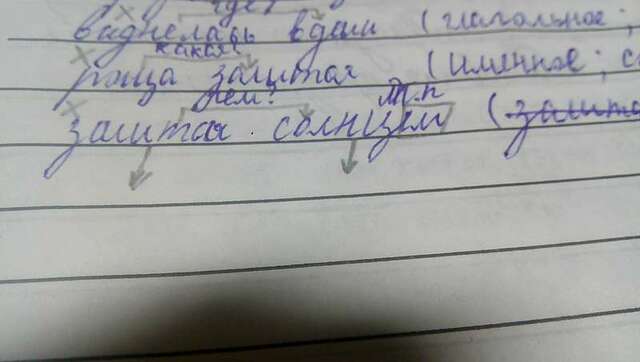 где?
виднелась вдали (глагольное;
какая?
роща залитая (именное; с
чем? Тп.п
залитая солнцем (залита